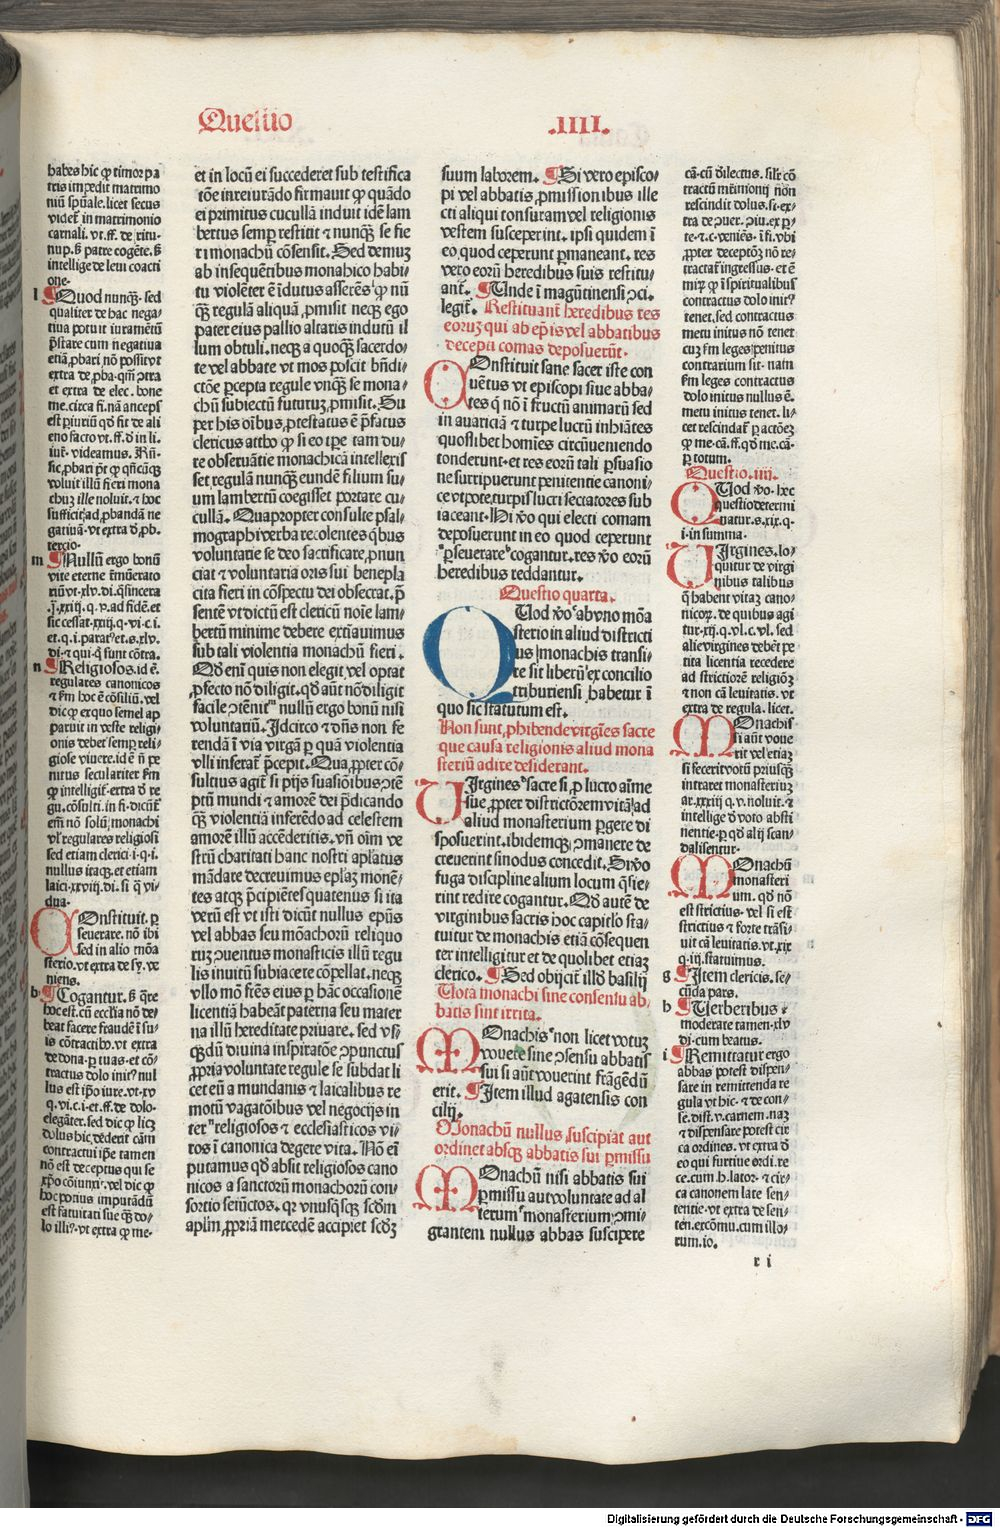 Questio .IIII.
habes hic ꝙ timor pa
tris impedit matrimo
niũ spũale. licet secus
videt᷑ in matrimonio
carnali. vt. ff. de ritu.
nup. ß patre cogẽte. ß
intellige de leui coacti
one.
l Quod nunꝗ̃. sed
qualiter de hac nega-
tiua potuit iuramẽtũ
p̃stare cum negatiua
etiã ꝓbari nõ possit vt
extra de ꝓba. qm̃ ↄtra
et extra de elec. bone
me. circa fi. nã anceps
est ꝑiuriũ qd̃ fit de ali
eno sacro vt. ff. d̃ in li.
iur. videamus. Rñ.
sic ꝓbari põt ꝙ qñcũqꝫ
voluit illũ fieri mona
chuꝫ ille noluit. ⁊ hoc
sufficit ad ꝓbandã ne
gatiuã. vt extra d̃ ꝓb.
tercio.
m Nullũ ergo bonũ
vite eterne ẽ munerato
riũ vt. xlv. di. q̃ sincera
.j̃. xxiij. q. v. ad fidẽ. et
sic cessat. xxiij. q. vi. c. i.
et. q. i. paratꝰ. et. s. xlv.
di. ⁊ qui. q̃ sunt cõtra.
n Religiosos. id ẽ.
regulares canonicos
⁊ ßm hoc ẽ cõsiliũ. vel
dic ꝙ ex quo semel ap
paruit in veste religi-
onis debet semꝑ reli-
giose viuere. id ẽ ñ pe
nitus seculariter ßm
ꝙ intelligit᷑ extra d̃ re
gu. cõsulti. in fi. dicũt᷑
em̃ nõ solũ monachi
vl᷑ regulares religiosi
sed etiam clerici. i. q. i.
nullus itaqꝫ. et etiam
laici. xxviij. di. si q̃ vi-
dua.
COnstituit. ꝑ
seuerare. nõ ibi
sed in alio mõa
sterio. vt extra de sy. ve
niens.
b Cogantur. ß q̃re
hoc est. cũ ecclia nõ de-
beat facere fraudẽ ĩ su-
is cõtractibꝰ. vt extra
de dona. ꝑ tuas. et cõ-
tractus dolo initꝰ nul
lus est ip̃o iure. vt. xv
q. vi. c. i. et. ff. de dolo.
elegãter. sed dic ꝙ licꝫ
dolus hic dederit cãm
contractui ip̃e tamen
nõ est deceptus qui se
xp̃o cõiunxit. vel dic ꝙ
hoc potius imputãdũ
est fatuitati sue q̃ꝫ do-
lo illiꝰ. vt extra ꝙ me-
et in locũ ei succederet sub testifica
tõe inreiurãdo firmauit ꝙ quãdo
ei primitus cucullã induit idẽ lam
bertus semꝑ restitit ⁊ nunꝗ̃ se fie
ri monachũ cõsensit. Sed demuꝫ
ab insequẽtibus monahico habi-
tu violẽter ẽ ĩdutus asserẽs ꝙ nũ
ꝗ̃ regulã aliquã ꝓmisit neqꝫ ego
pater eius pallio altaris indutũ il
lum obtuli. neqꝫ a quoꝗ̃ sacerdo-
te vel abbate vt mos poscit bñdi-
ctõe ꝑcepta regule vnꝗ̃ se mona-
chũ subiectũ futuruꝫ ꝓmisit. Su
per his oĩbus ꝓtestatus ẽ p̃fatus
clericus attho ꝙ si eo tꝑe tam du-
re obseruãtie monachicã intellexis
set regulã nunꝗ̃ eundẽ filium su-
um lambertũ coegisset portare cu-
cullã. Quapropter consulte psal-
mographi verba recolentes qͥbus
voluntarie se deo sacrificare ꝓnun
ciat ⁊ voluntaria oris sui benepla
cita fieri in cõspectu dei obsecrat. p̃
sentẽ vt dictũ est clericũ noĩe lam-
bertũ minime debere extĩauimus
sub tali violentia monachũ fieri.
Qd̃ enĩ quis non elegit vel optat
ꝓfecto nõ diligit. qd̃ aũt nõ diligit
facile ↄtẽnitᵐ nullũ ergo bonũ nisi
voluntariũ. Idcirco ⁊ dñs non fe
rendã ĩ via virgã ꝑ quã violentia
vlli inferat᷑ p̃cepit. Quaꝓpter cõ-
sultius agit᷑ si pijs suasiõibus ↄtẽ
ptũ mundi ⁊ amorẽ dei p̃dicando
ꝗ̃ violentiã inferẽdo ad celestem
amorẽ illũ accẽderitis. vñ oĩm ve
strũ charitati hanc nostri aplatus
mãdate decreuimus eplaꝫ monẽ-
tes atqꝫ p̃cipiẽtes quatenus si ita
verũ est vt isti dicũt nullus ep̃us
vel abbas seu mõachorũ reliquo
ruꝫ ↄuentus monasticis illũ regu
lis inuitũ subiacere cõpellat. neqꝫ
vllo mõ fr̃es eius ꝑ hãc occasionẽ
licentiã habeãt paterna seu mater
na illũ hereditate priuare. sed vsꝗ̃
ꝗ̃dũ diuina inspiratõe ↄpunctus
ꝓpria voluntate regule se subdat li
cet eũ a mundanis ⁊ laicalibus re
motũ vagatõibus vel negocijs in
terⁿ religiosos ⁊ ecclesiasticos vi-
ros ĩ canonica degere vita. Nõ eĩ
putamus qd̃ absit religiosos cano
nicos a sanctorũ monachorũ con-
sortio seiũctos. qꝛ vnusqͥsqꝫ scđm
aplm̃ ꝓpriã mercedẽ accipiet scđꝫ
suum laborem. Si vero episco-
pi vel abbatis ꝓmissionibus ille
cti aliqui tonsuram vel religionis
vestem susceperint. ipsi quidem ĩ
eo quod ceperunt ꝑmaneant. res
vero eorũ heredibus suis restitu-
ant᷑. Unde ĩ magũtinensi ↄci.
legit᷑. Restituant᷑ heredibus res
eoruꝫ qui ab ep̃is vel abbatibus
decepti comas deposuerũt.
COnstituit sane sacer iste con
uẽtus vt episcopi siue abba-
tes q̃ nõ ĩ fructũ animarũ sed
in auariciã ⁊ turpe lucrũ inhiãtes
quoslibet homĩes circũueniendo
tonderunt. et res eorũ tali ꝑsuasio
ne surripuerunt penitentie canoni-
ce vtpote turpis lucri sectatores sub
iaceant. Hi ꝟo qui electi comam
deposuerunt in eo quod ceperunt
ꝑseuerareᵇ cogantur. res ꝟo eorũ
heredibus reddantur.
Questio quarta.
QUod ꝟoᵃ ab vno mõa
sterio in aliud districti
us monachis transi-
re sit liberũ ex concilio
triburiensi habetur ĩ
quo sic statutum est.
Non sunt ꝓhibende virgĩes sacre
que causa religionis aliud mona
steriũ adire desiderant.
UIrginesᶜ sacre si ꝓ lucro aĩme
sue ꝓpter districtiõrem vitã ad
aliud monasterium pergere di
sposuerint. ibidemqꝫ ↄmanere de
creuerint sinodus concedit. Si ꝟo
fuga discipline alium locum q̃sie-
rint redire cogantur. Qd̃ autẽ de
virginibus sacris hoc capitlo sta-
tuitur de monachis etiã cõsequen
ter intelligitur et de quolibet etiaꝫ
clerico. Sed obijcit᷑ illd̃ basilij
Uota monachi sine consensu ab-
batis sunt irrita.
MOnachisᵉ non licet votuꝫ
vouere sine ↄsensu abbatis
sui si aũt vouerint frãgẽdũ
erit. Item illud agatensis con
cilij.
Monachũ nullus suscipiat aut
ordinet absqꝫ abbatis sui ꝑmissu
MOnachũ nisi abbatis sui
ꝑmissu aut voluntate ad al
terumᶠ monasterium ↄmi-
grantem nullus abbas suscipere
cã. cũ dilectus. silr̃ cõ
tractũ mr̃imonij nõn
rescindit dolus. si. ex-
tra de ↄuer. ↄiu. ex ꝑ-
te. ⁊. c. veniẽs. ĩ fi. vbi
ꝓpter deceptõꝫ nõ re-
tractat᷑ ingressus. et ẽ
mirꝫ ꝙ ĩ spiritualibus
contractus dolo initꝰ
tenet. sed contractus
metu initus nõ tenet
cuꝫ ßm leges penitus
contrarium sit. nam
ßm leges contractus
dolo initus nullus ẽ.
metu initus tenet. li-
cet rescindat᷑ ꝑ actõeꝫ
ꝙ me. cã. ff. qd̃ me. cã.
ꝑ totum.
Questio. iiij.
QUod ꝟo. hec
questio determi
natur. s. xix. q.
i. in summa.
UIrgines. lo-
quitur de virgi
nibus talibus
q̃ habent vitaꝫ cano-
nicoꝝ. de quibus agi
tur. xij. q. vl. c. vl. sed
alie virgines debẽt pe
tita licentia recedere
ad strictiorẽ religiõꝫ
⁊ non cã leuitatis. vt
extra de regula. licet.
MOnachis
si aũt voue
rit vel etiaꝫ
si fecerit votũ priusꝗ̃
intraret monasteriuꝫ
ar. xxxiij. q. v. noluit. ⁊
intellige d̃ voto absti
nentie. ꝑ qd̃ alij scan-
dalisentur.
MOnachũ
monasteri
um. qd̃ nõ
est strictius. vel si est
strictius ⁊ forte trãsi-
uit cã leuitatis. vt. xix
q. iij. statuimus.
g Item clericis. se-
cũda pars.
h Uerberibus.
moderate tamen. xlv
di. cum beatus.
i Remittatur ergo
abbas potest dispen-
sare in remittenda re
gula vt hic. ⁊ de con-
se. dist. v. carnem. naꝫ
⁊ dispensare potest cir
ca ordines. vt extra d̃
eo qui furtiue ordi. re
ce. cum h. lator. ⁊ cir-
ca canonem late sen-
tentie. vt extra de sen-
ten. excõmu. cum illo-
rum. io.
r i
Digitalisierung gefördert durch die Deutsche Forschungsgemeinschaft - DFG